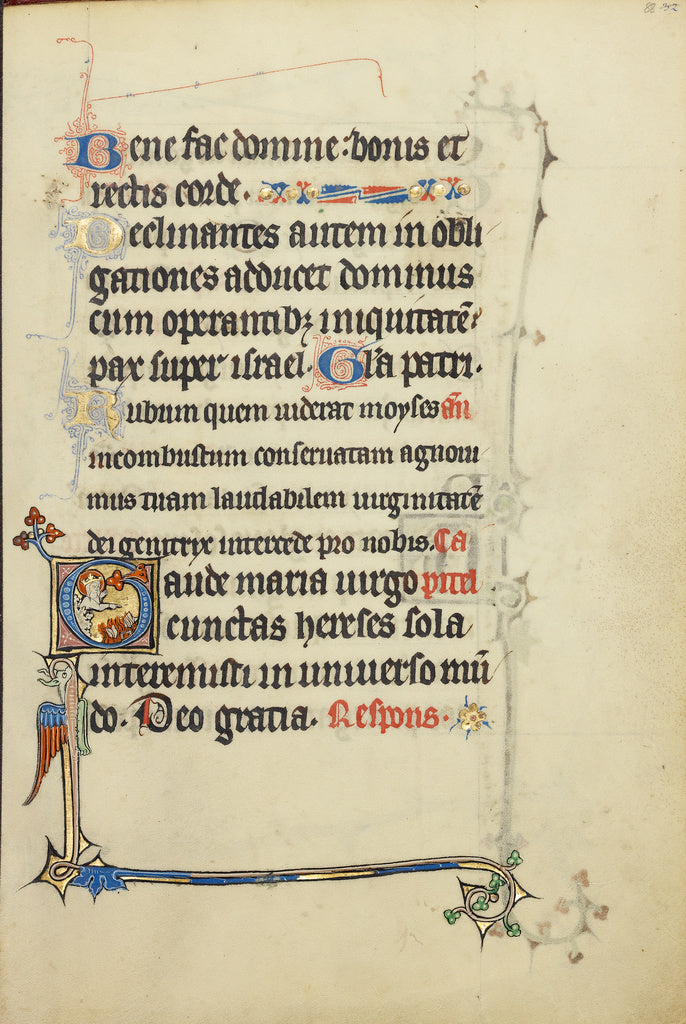 Bene fac domine: bonis et
rectis corde.
Declinantes autem in obli
gationes adducet dominus
cum operantibꝫ iniquitatē:
pax super israel. Gl̄a patri.
Rubum quem uiderat moyses añ
incombustum conseruatam agnoui
mus tuam laudabilem uirginitatē
dei genitrix intercede pro nobis. Ca
Gaude maria uirgo pitel
cunctas hereses sola
interemisti in uniuerso mū
do. Deo gratia. Respons.